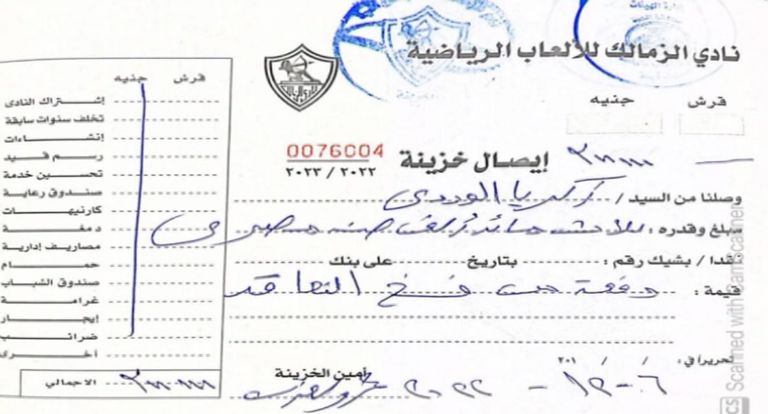 نادي الزمالك للألعاب الرياضية
قرش جنيه
0076004
إيصال خزينة
٢٠٢٢ / ٢٠٢٣
وصلنا من السيد / زكريا الوردي
مبلغ وقدره : ثلاثمائة ألف جنيه مصري
نقدا / بشيك رقم : بتاريخ على بنك
قيمة : دفعة من فسخ التعاقد
تحريرا في : / / ٢٠١
أمين الخزينة
٢٠٢٢ - ١٢ - ٠٦
قرش جنيه
إشتراك النادى
تخلف سنوات سابقة
إنشاءات
رسم قيد
تحسين خدمة
صندوق رعاية
كارنيهات
دمغة
مصاريف إدارية
حمام
صندوق الشباب
غرامة
إيجار
ضرائب
أخرى
الاجمالي
Scanned with CamScanner
CS